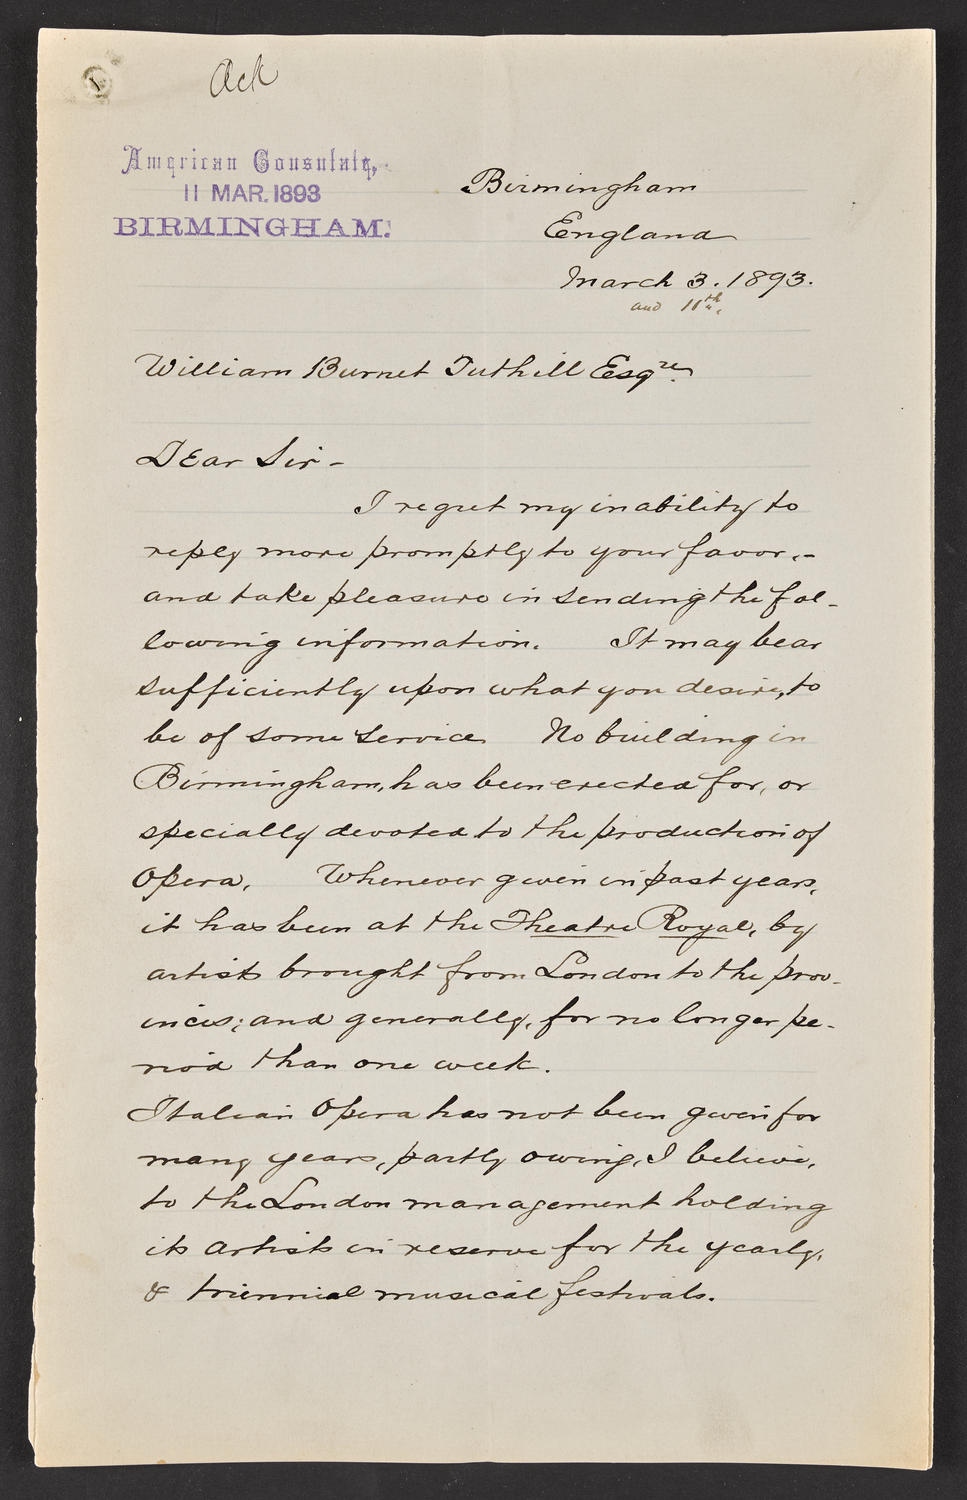 1
Ack
American Consulate,
11 MAR. 1893
BIRMINGHAM.
Birmingham
England
March 3. 1893.
and 11th.
William Burnet Tuthill Esqre.
Dear Sir -
I regret my inability to
reply more promptly to your favor, -
and take pleasure in sending the fol-
lowing information. It may bear
sufficiently upon what you desire, to
be of some service. No building in
Birmingham, has been erected for, or
specially devoted to the production of
Opera. Whenever given in past years,
it has been at the Theatre Royal, by
artists brought from London to the prov-
inces; and generally, for no longer pe-
riod than one week.
Italian Opera has not been given for
many years, partly owing, I believe,
to the London management holding
its artists in reserve for the yearly,
& triennial musical festivals.